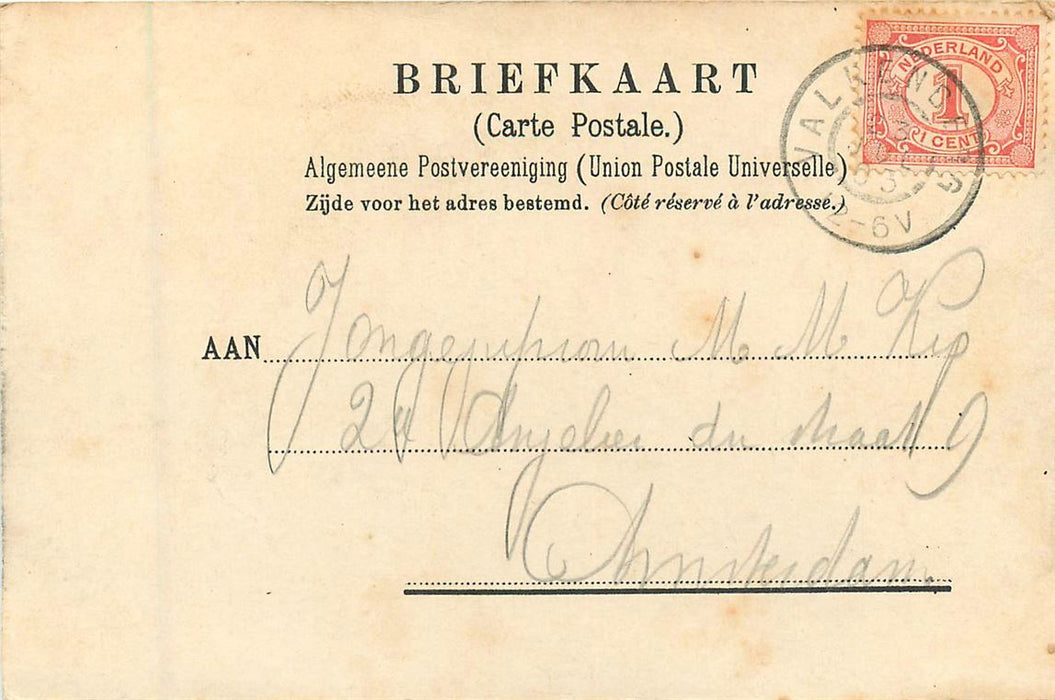 BRIEFKAART
(Carte Postale.)
Algemeene Postvereeniging (Union Postale Universelle)
Zijde voor het adres bestemd. (Côté réservé à l'adresse.)
NEDERLAND
1
(1 CENT)
2-6V
AAN Jongejufrouw M M Kip
24 Anjelier du straat
Amsterdam